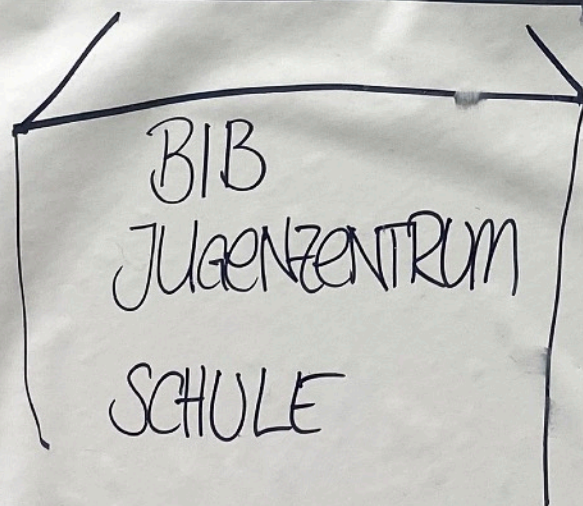 BIB
JUGENZENTRUM
SCHULE